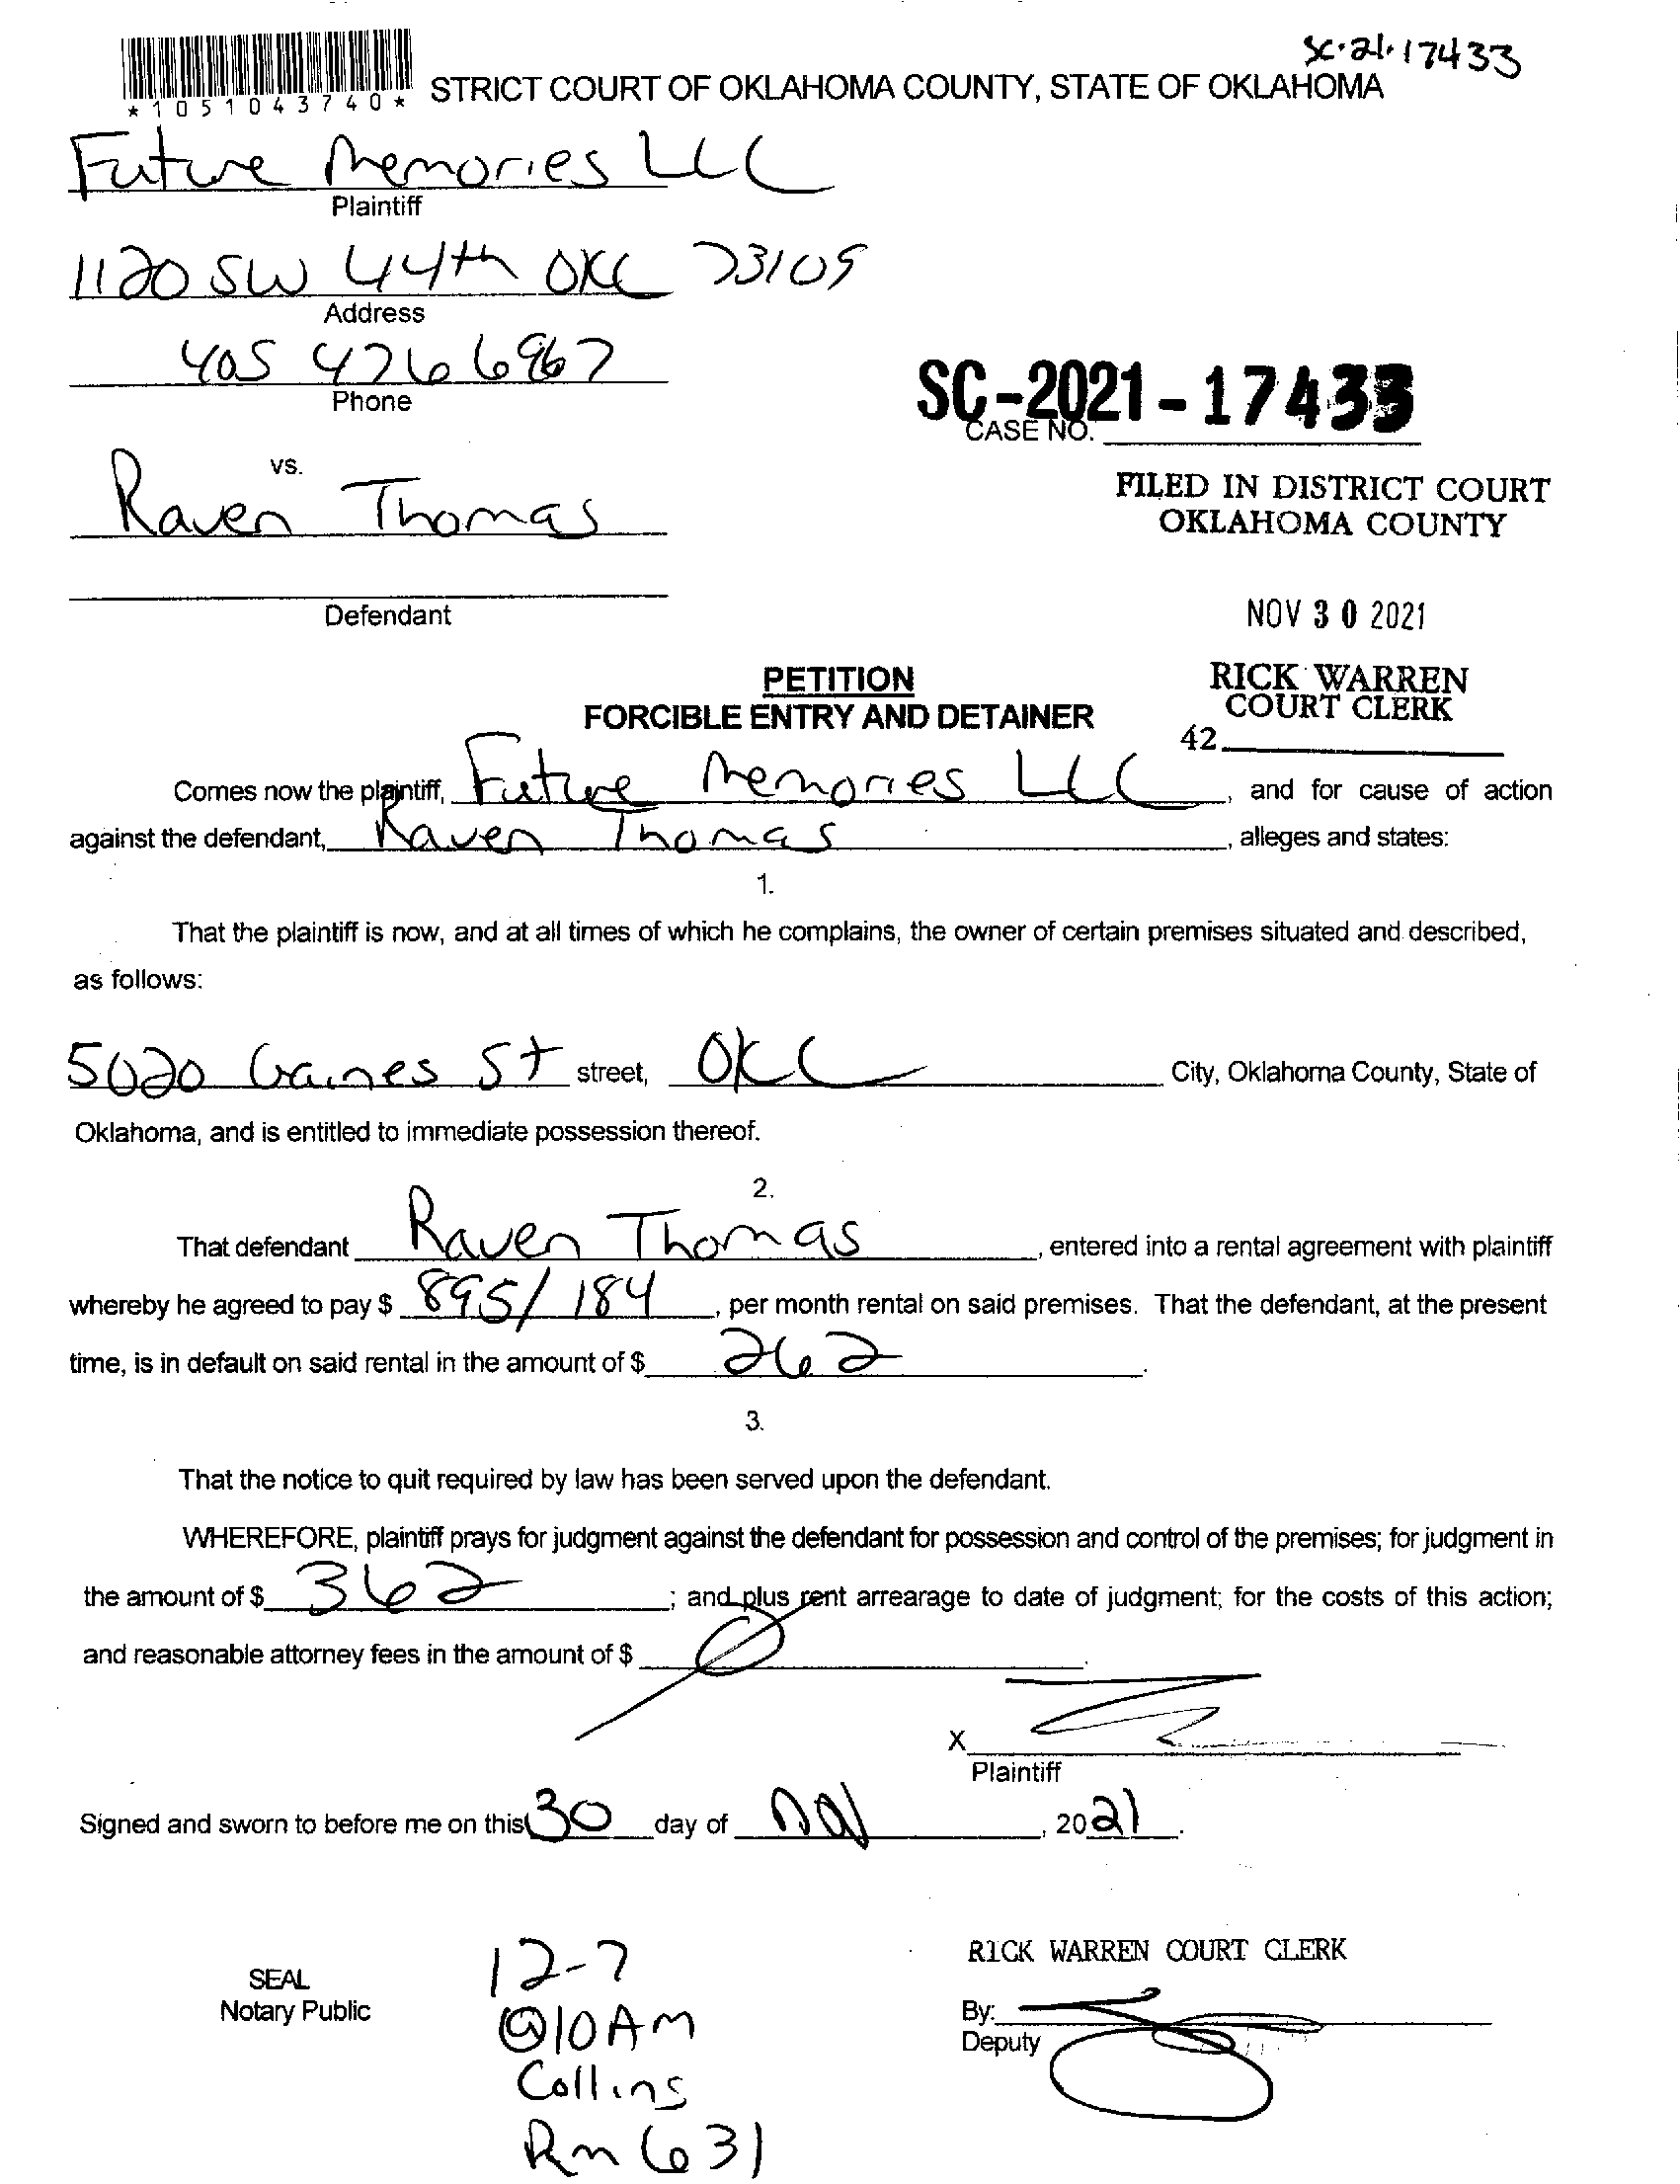 SC-21-17433
*1051043740* STRICT COURT OF OKLAHOMA COUNTY, STATE OF OKLAHOMA
Future Memories LLC
Plaintiff
1120 SW 44th OKC 73109
Address
405 476 6967
Phone
SC-2021-17433
CASE NO.
vs.
Raven Thomas
FILED IN DISTRICT COURT
OKLAHOMA COUNTY
Defendant
NOV 30 2021
PETITION
FORCIBLE ENTRY AND DETAINER
RICK WARREN
COURT CLERK
42
Comes now the plaintiff, Future Memories LLC, and for cause of action
against the defendant, Raven Thomas, alleges and states:
1.
That the plaintiff is now, and at all times of which he complains, the owner of certain premises situated and described,
as follows:
5020 Gaines St street, OKC City, Oklahoma County, State of
Oklahoma, and is entitled to immediate possession thereof.
2.
That defendant Raven Thomas, entered into a rental agreement with plaintiff
whereby he agreed to pay $ 895/184, per month rental on said premises. That the defendant, at the present
time, is in default on said rental in the amount of $ 262.
3.
That the notice to quit required by law has been served upon the defendant.
WHEREFORE, plaintiff prays for judgment against the defendant for possession and control of the premises; for judgment in
the amount of $ 362; and plus rent arrearage to date of judgment; for the costs of this action;
and reasonable attorney fees in the amount of $ 0.
X
Plaintiff
Signed and sworn to before me on this 30 day of Nov, 2021.
SEAL
Notary Public
12-7
@10AM
Collins
Rm 631
RICK WARREN COURT CLERK
By:
Deputy